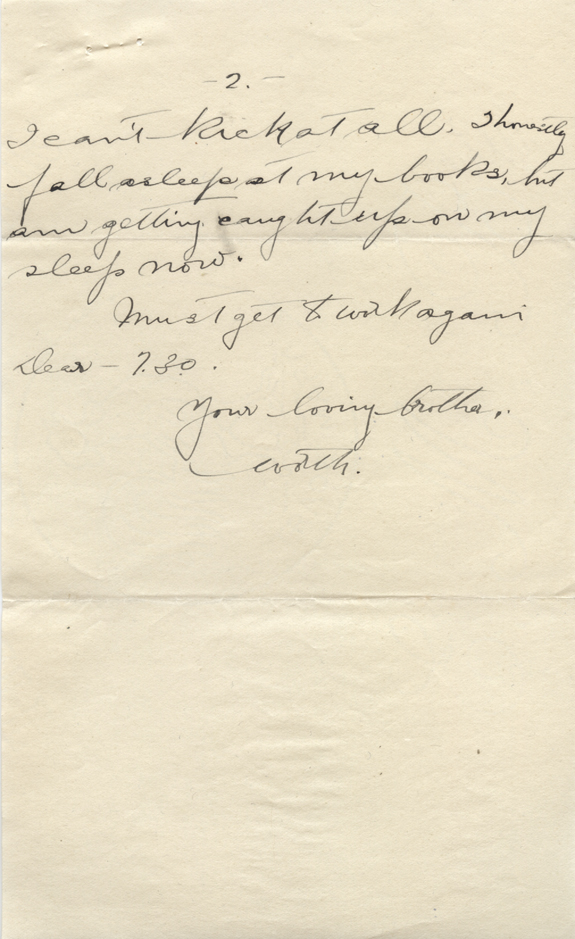 - 2. -
I can't kick at all. I honestly
fall asleep at my books, but
am getting caught up on my
sleep now.
Must get to work again
Dear - 7.30.
Your loving brother,
Worth.